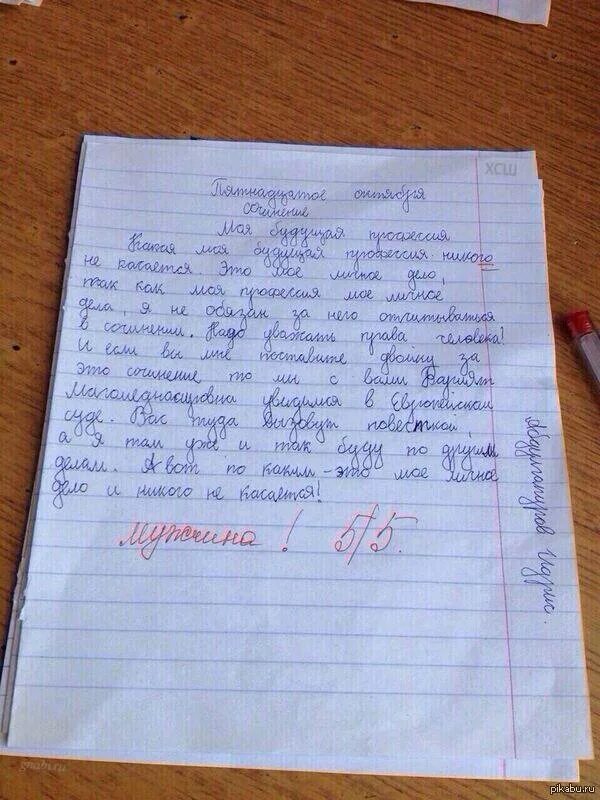 ХСШ
Пятнадцатое октября
сочинение
Моя будущая профессия
Какая моя будущая профессия никого
не касается. Это мое личное дело,
так как моя профессия мое личное
дела, я не обязан за него отчитываться
в сочинении. Надо уважать права человека!
И если вы мне поставите двойку за
это сочинение то мы с вами
увидимся в Европейском
суде. Вас туда вызовут повесткой,
а я там уже и так буду по другим
делам. А вот по каким - это мое личное
дело и никого не касается!
мужчина! 5/5.
Идрис.
gnabi.ru
pikabu.ru